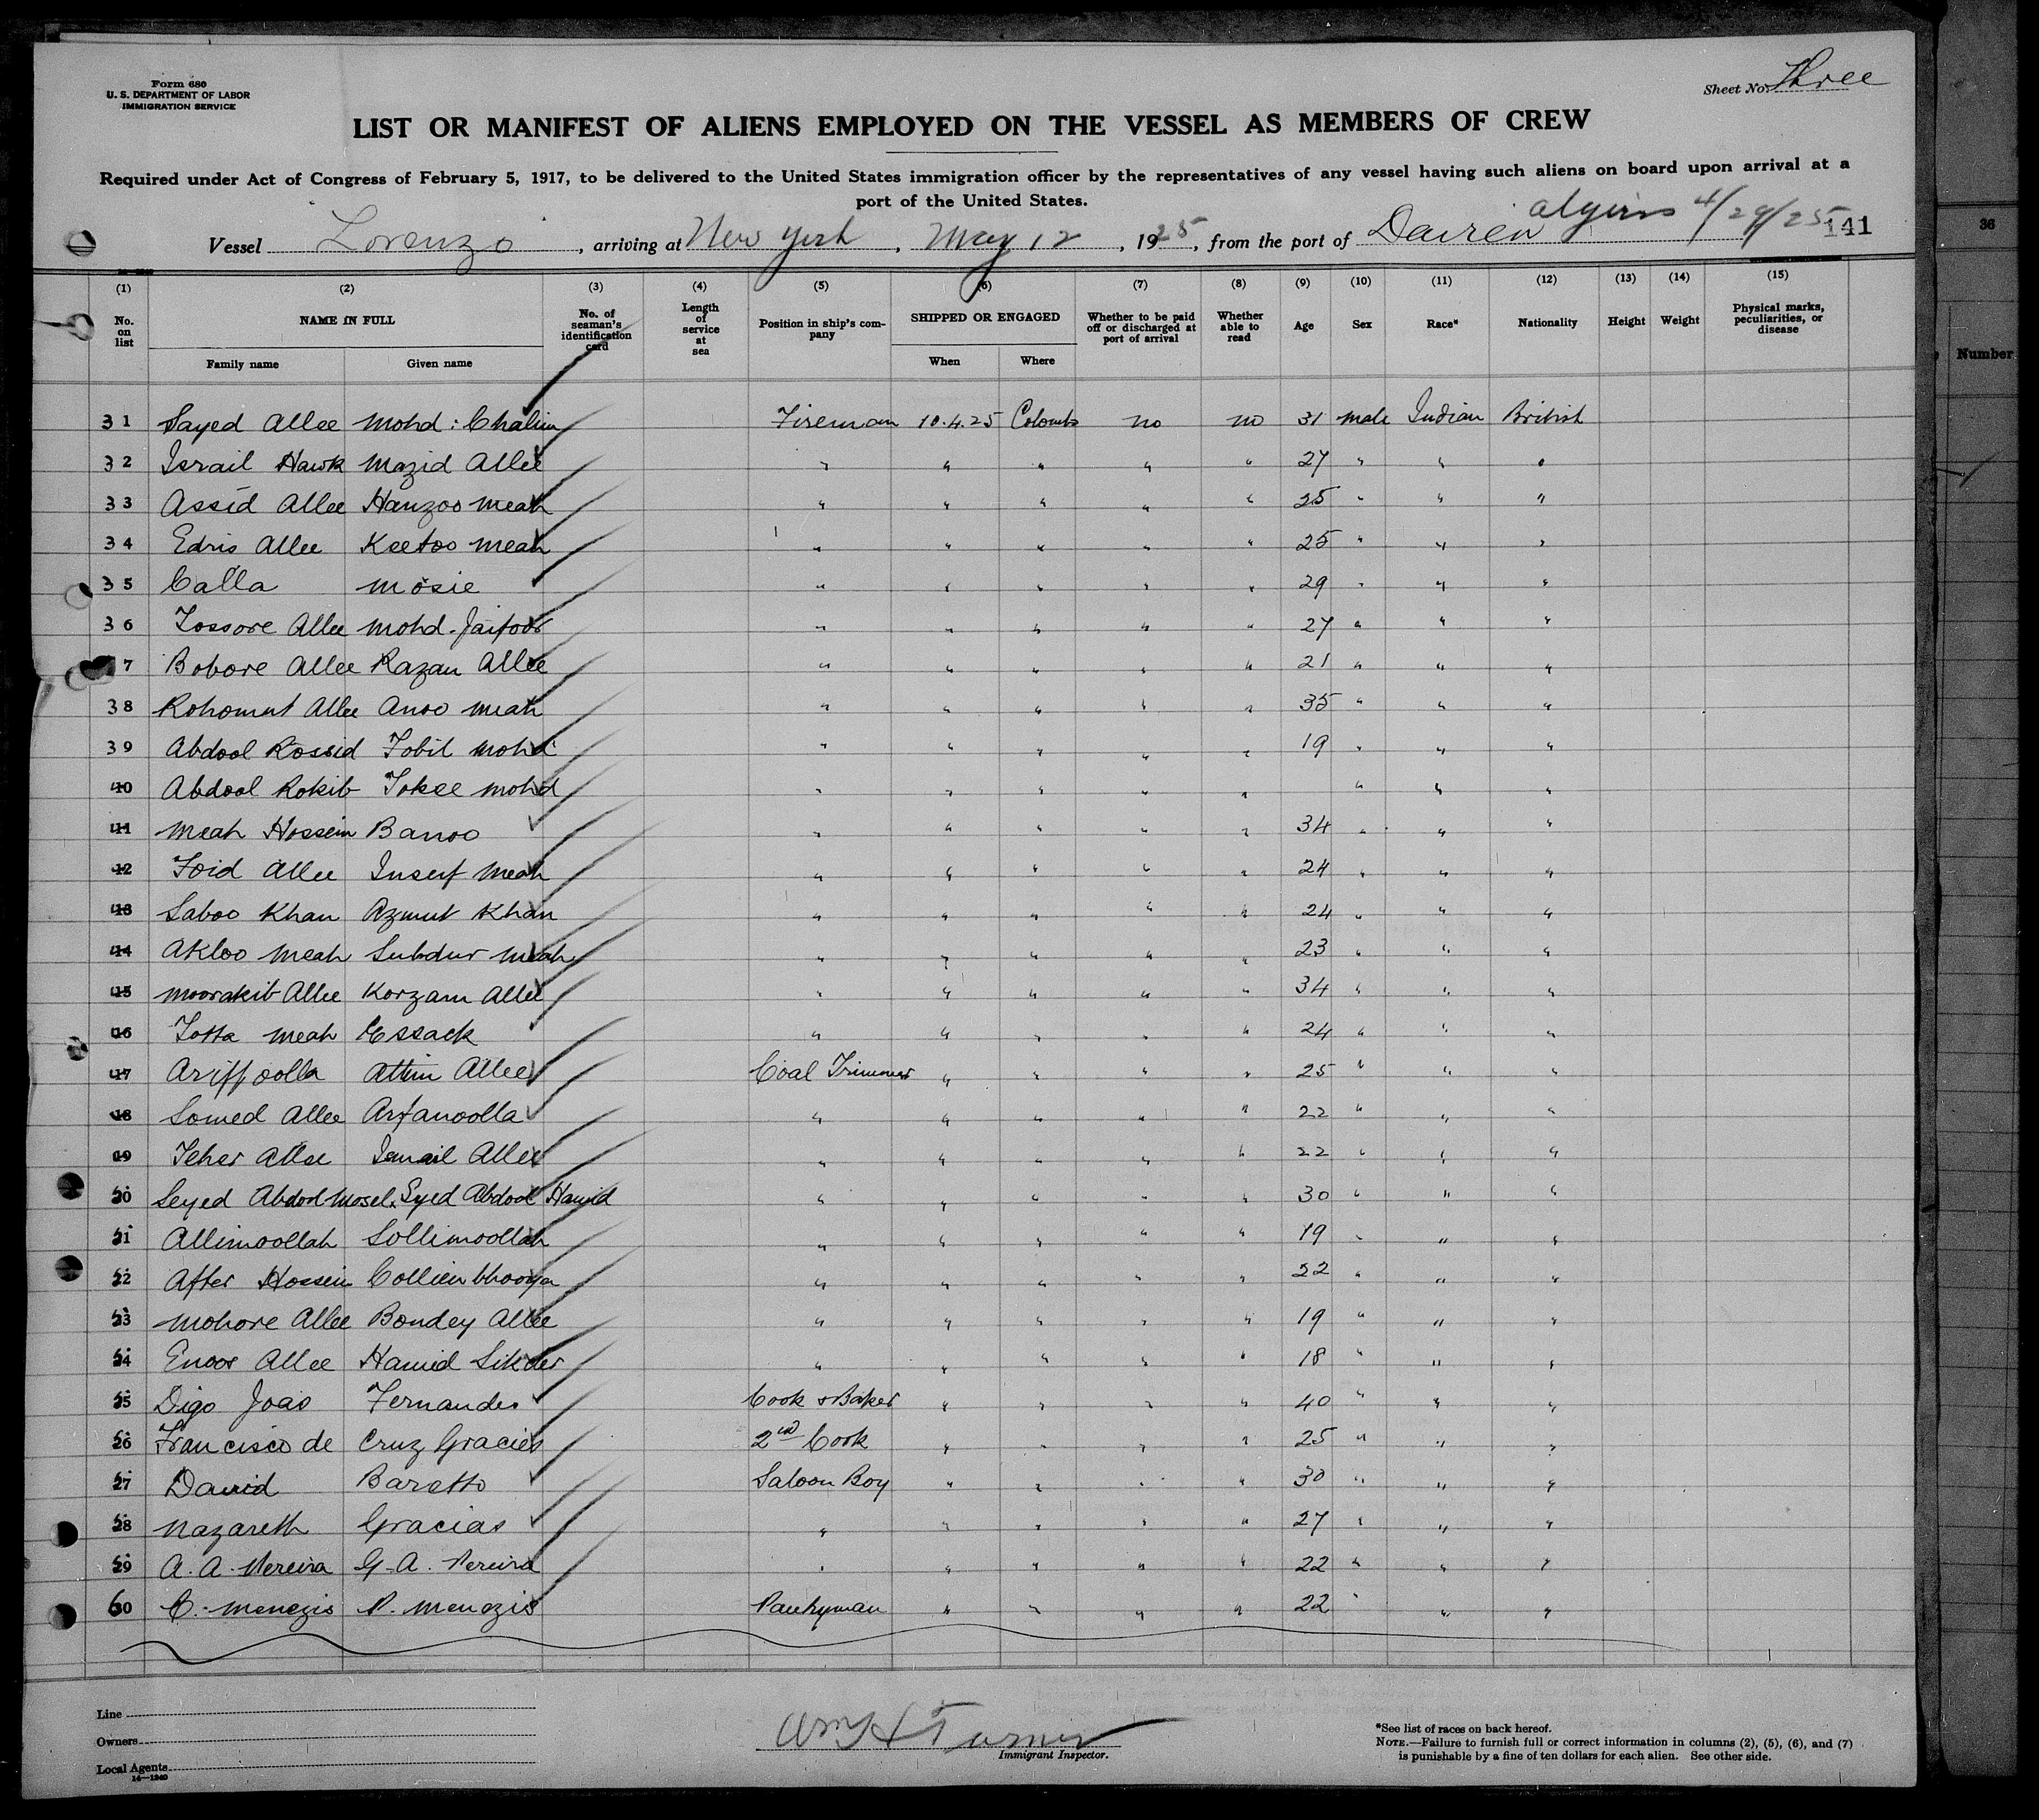 Form 680
U. S. DEPARTMENT OF LABOR
IMMIGRATION SERVICE
Sheet No. Three
LIST OR MANIFEST OF ALIENS EMPLOYED ON THE VESSEL AS MEMBERS OF CREW
Required under Act of Congress of February 5, 1917, to be delivered to the United States immigration officer by the representatives of any vessel having such aliens on board upon arrival at a
port of the United States.
Algiers 4/29/25
Vessel Lorenzo, arriving at New York, May 12, 1925, from the port of Dairen 141
(1) (2) (3) (4) (5) (6) (7) (8) (9) (10) (11) (12) (13) (14) (15)
No. on list NAME IN FULL No. of seaman's identification card Length of service at sea Position in ship's company SHIPPED OR ENGAGED Whether to be paid off or discharged at port of arrival Whether able to read Age Sex Race* Nationality Height Weight Physical marks, peculiarities, or disease
Family name Given name When Where
36
Number
31 Sayed Allee Mohd: Chalim Fireman 10.4.25 Colombo no no 31 male Indian British
32 Israil Hawk Mazid Allee " " " " " 27 " " "
33 Assid Allee Hanzoo Meah " " " " " 25 " " "
34 Edris Allee Keetoo Meah " " " " " 25 " " "
35 Calla Mosie " " " " " 29 " " "
36 Tossore Allee Mohd. Jaifoor " " " " " 27 " " "
7 Bobore Allee Razan Allee " " " " " 21 " " "
38 Rohomut Allee Anoo Meah " " " " " 35 " " "
39 Abdool Rossid Tobil Mohd: " " " " " 19 " " "
40 Abdool Rokib Tokee Mohd " " " " " " " "
41 Meah Hossein Banoo " " " " " 34 " " "
42 Foid Allee Insuf Meah " " " " " 24 " " "
43 Saboo Khan Azmut Khan " " " " " 24 " " "
44 Akloo Meah Subdur Meah " " " " " 23 " " "
45 Moorakib Allee Korzam Allee " " " " " 34 " " "
46 Totta Meah Essack " " " " " 24 " " "
47 Ariffoolla Attim Allee Coal Trimmer " " " " 25 " " "
48 Somed Allee Arfanoolla " " " " " 22 " " "
49 Teher Allee Ismail Allee " " " " " 22 " " "
50 Seyed Abdool Mosel. Syed Abdool Hamid " " " " " 30 " " "
51 Allimoollah Sollimoollah " " " " " 19 " " "
52 After Hossein Collien bhooya " " " " " 22 " " "
53 Mohore Allee Bondey Allee " " " " " 19 " " "
54 Enoos Allee Hamid Sikder " " " " " 18 " " "
55 Digo Joas Fernandes Cook & Baker " " " " 40 " " "
56 Francisco de Cruz Gracies 2nd Cook " " " " 25 " " "
57 David Baretto Saloon Boy " " " " 30 " " "
58 Nazareth Gracias " " " " " 27 " " "
59 A. A. Pereira G. A. Pereira " " " " " 22 " " "
60 C. Menezis P. Menezis Pantryman " " " " 22 " " "
Line
Owners
Local Agents
14—1240
Wm H Turner
Immigrant Inspector.
*See list of races on back hereof.
NOTE.—Failure to furnish full or correct information in columns (2), (5), (6), and (7)
is punishable by a fine of ten dollars for each alien. See other side.